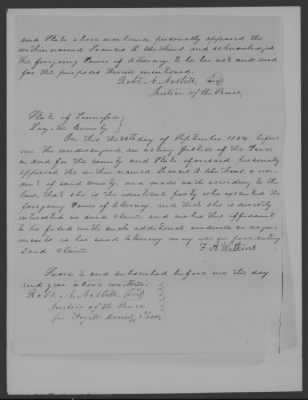 and State above mentioned, personally appeared the
within named Frances A. Watkins and acknowledged
the foregoing Power of Attorney to be her act and deed
for the purposes therein mentioned.
Robt. N. Nesbitt
Justice of the Peace,
State of Tennessee
Fayette County
On this day of September before
me the undersigned, an acting Justice of the Peace
in and for the county and State aforesaid, personally
appeared the within named Frances A. Watkins, a resi-
dent of said County, and made oath according to the
law, that she is the identical party who executed the
foregoing Power of Attorney, and that she is directly
interested in said claim, and makes this affidavit
to be filed with such additional evidence or argu-
ments as her said Attorney may use in prosecuting
said claim.
F. A. Watkins
Sworn to and subscribed before me the day
and year above written.
Robt. N. Nesbitt
Justice of the Peace
for Fayette County Tenn.